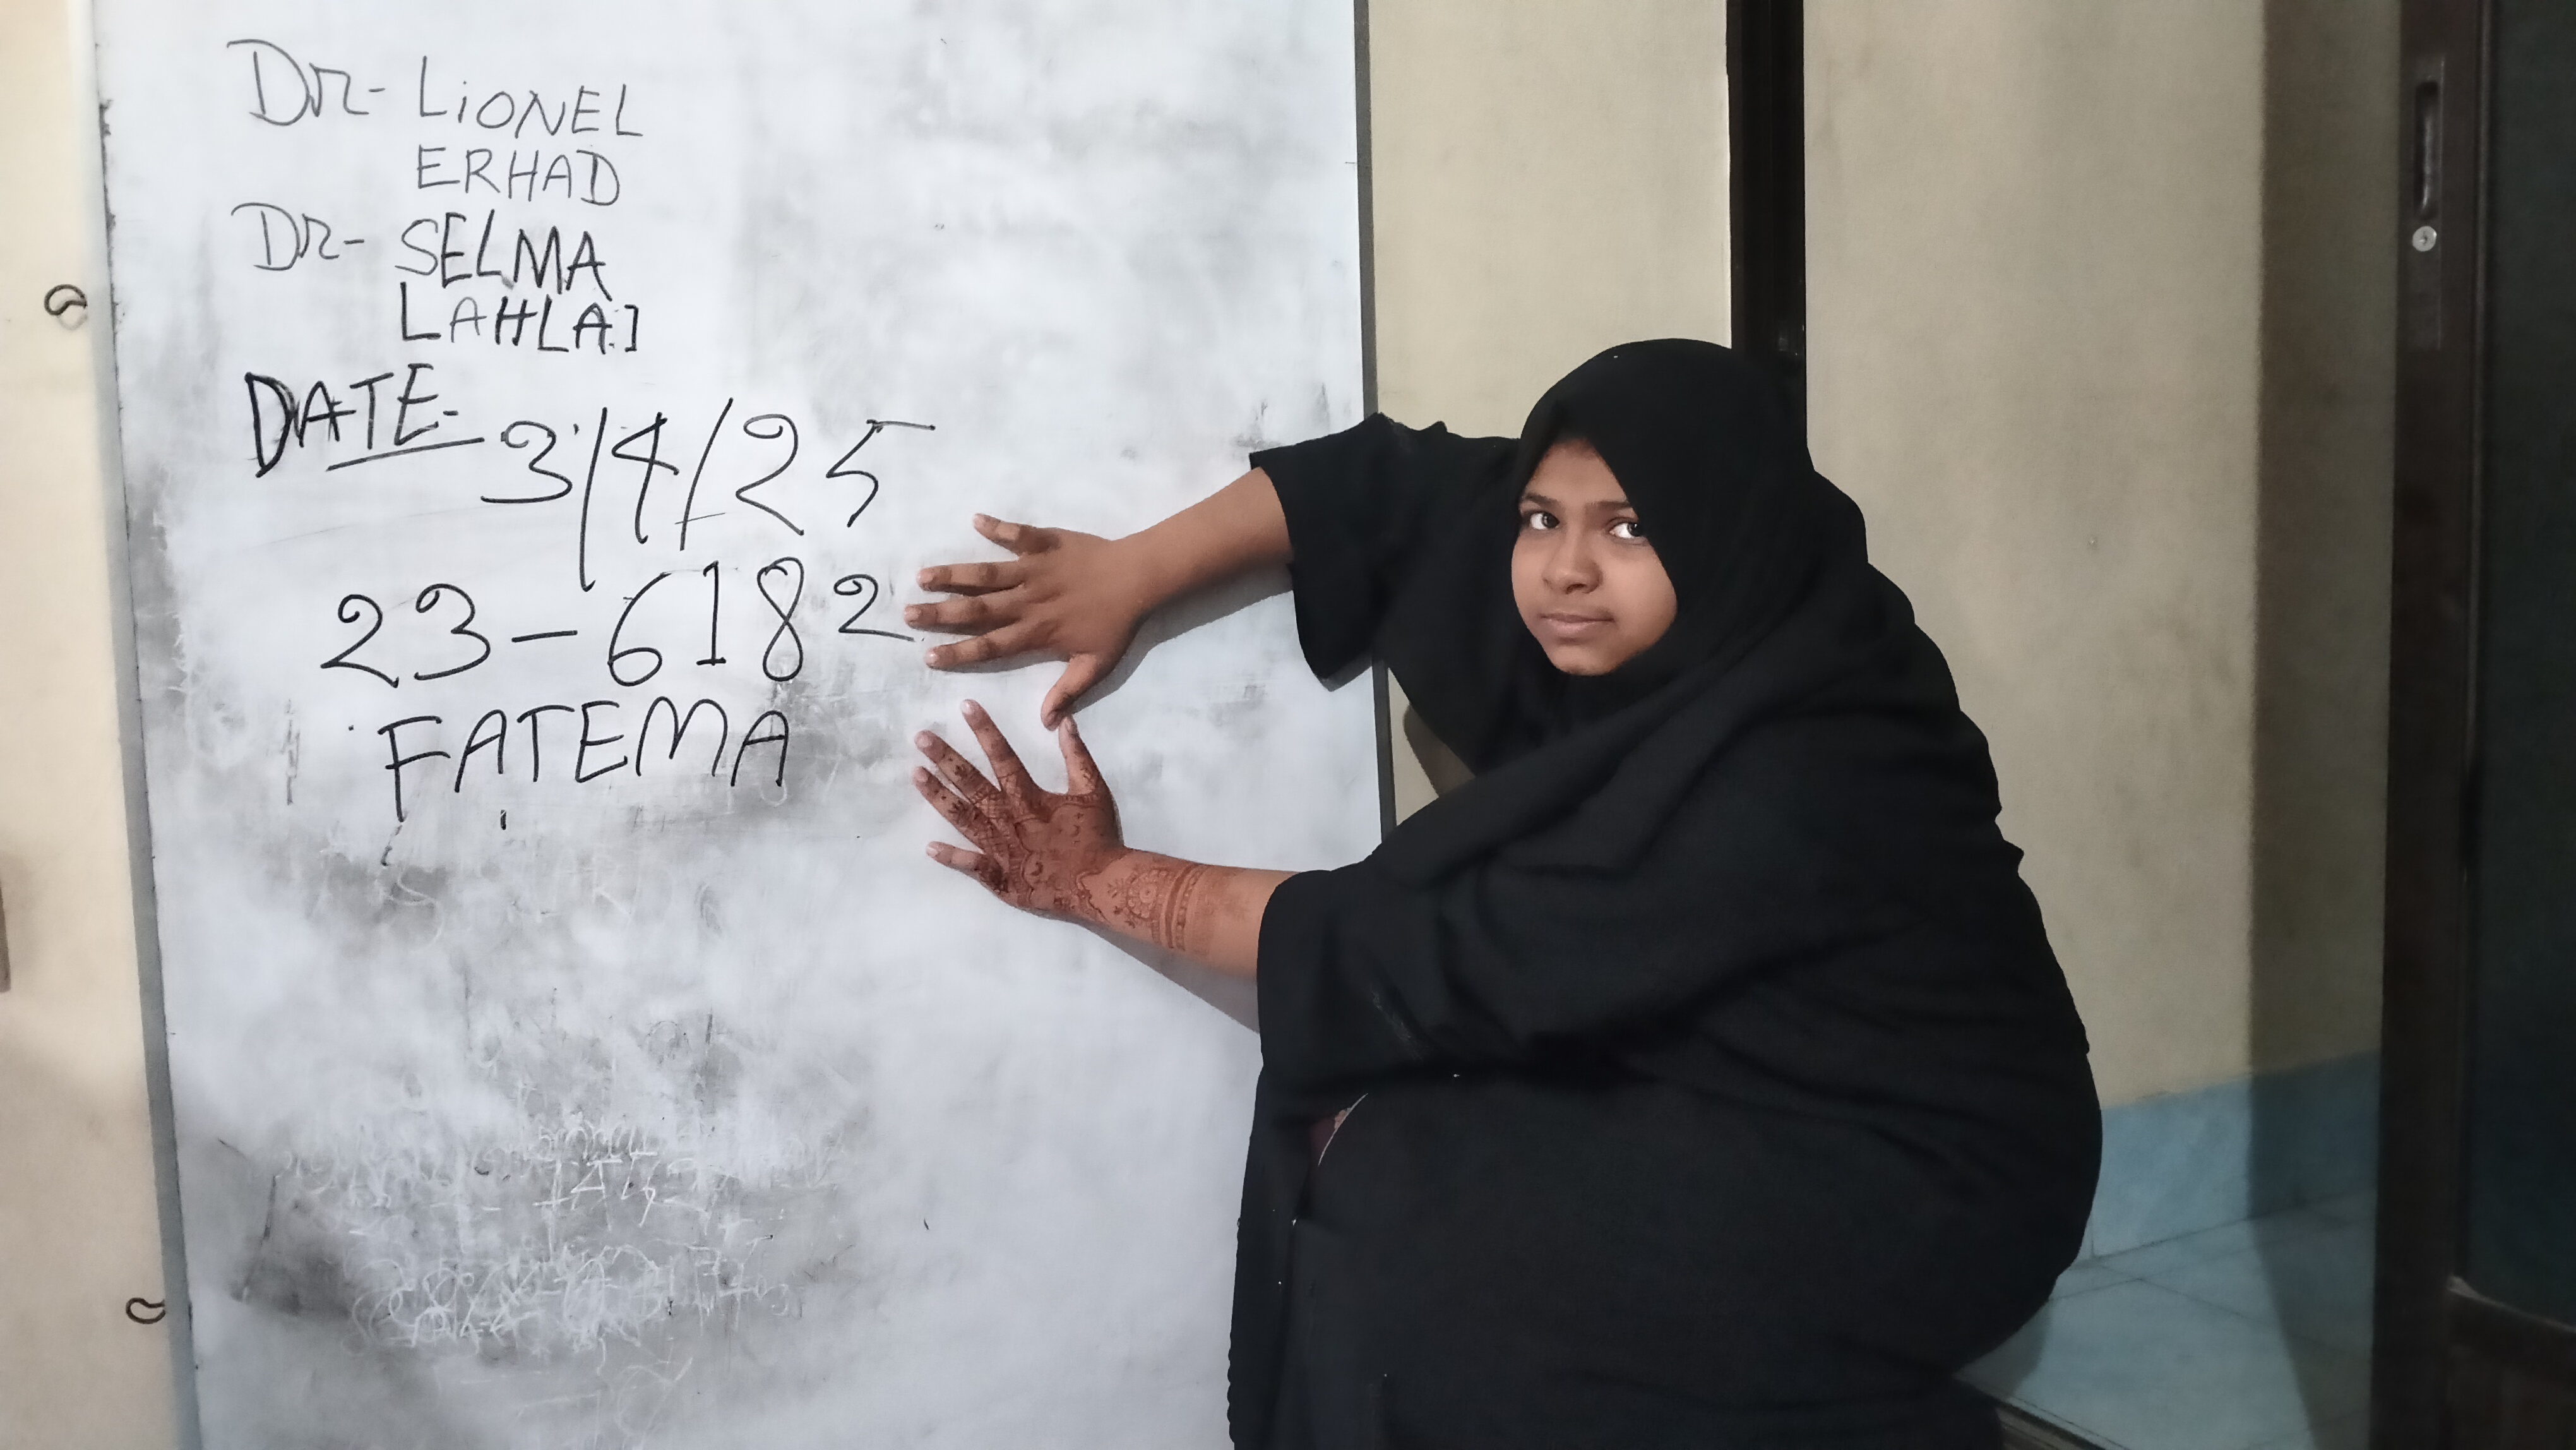 Dr- LiONEL
ERHAD
Dr- SELMA
LAHLAI
DATE- 3/4/25
23-6182
FATEMA